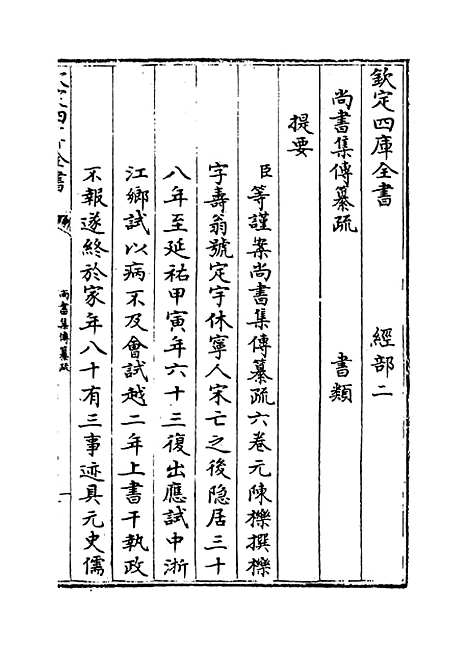 欽定四庫全書　　　經部二
尚書集傳纂疏　　　書類
提要
臣等謹案尚書集傳纂疏六卷元陳櫟撰櫟
字壽翁號定宇休寧人宋亡之後隱居三十
八年至延祐甲寅年六十三復出應試中浙
江鄉試以病不及會試越二年上書干執政
不報遂終於家年八十有三事迹具元史儒
欽定四庫全書
尚書集傳纂疏
一